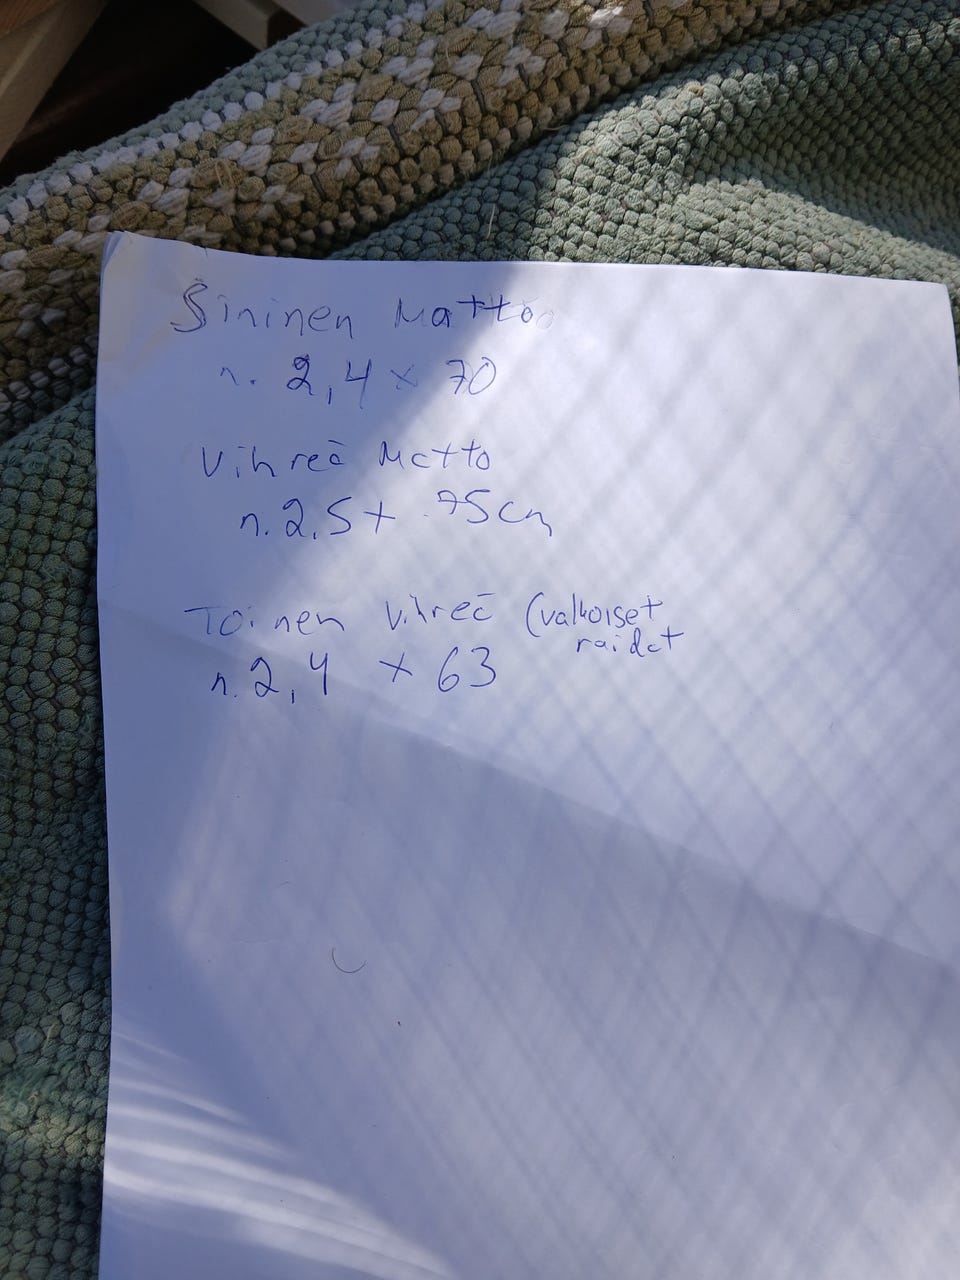 Sininen Matto
n. 2,4 x 70
Vihreä Matto
n. 2,5 x 75cm
Toinen Vihreä (valkoiset
raidat
n. 2,4 x 63